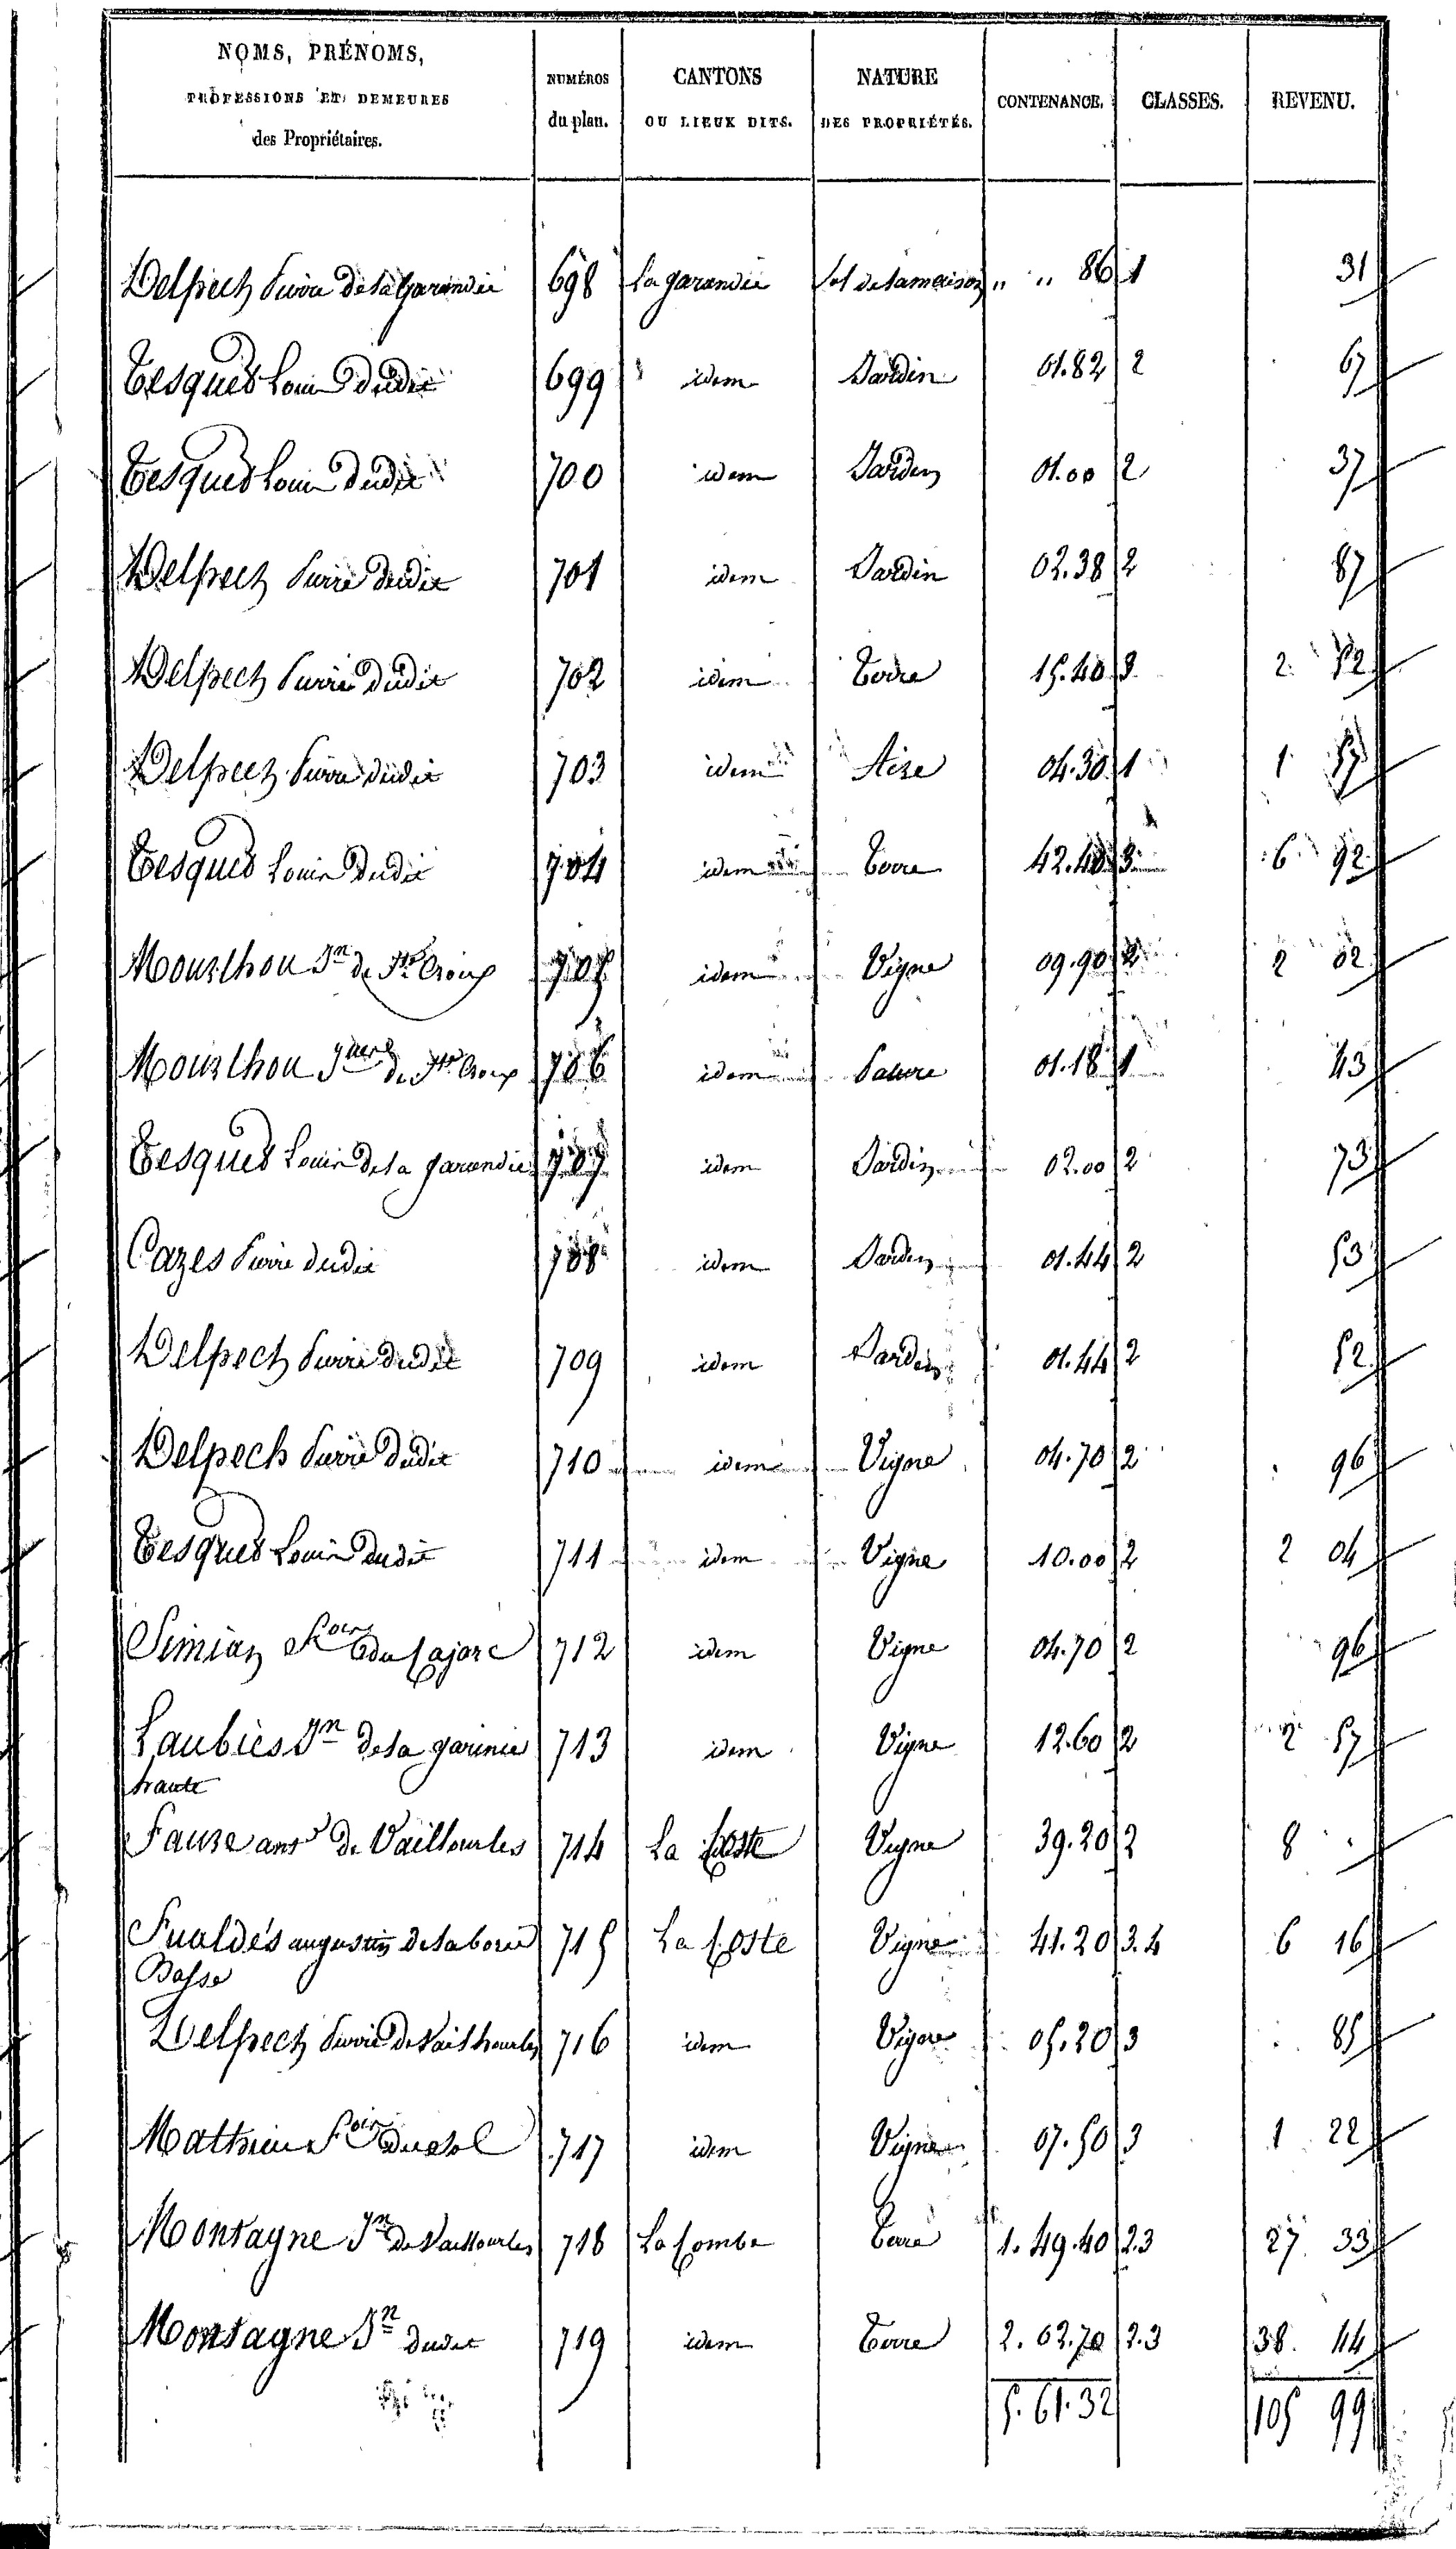 NOMS, PRÉNOMS, PROFESSIONS ET DEMEURES des Propriétaires. NUMÉROS du plan. CANTONS OU LIEUX DITS. NATURE DES PROPRIÉTÉS. CONTENANCE. CLASSES. REVENU.
Delpech Pierre de la Garandie 698 La garandie Sol de la maison " " 86 1 31
Tesques Louis dudit 699 idem Jardin 01.82 2 67
Tesques Louis dudit 700 idem Jardin 01.00 2 37
Delpech Pierre dudit 701 idem Jardin 02.38 2 87
Delpech Pierre dudit 702 idem Terre 15.40 3 2 52
Delpech Pierre dudit 703 idem Aire 04.30 1 1 57
Tesques Louis dudit 704 idem Terre 42.40 3 6 92
Mourlhou Jn de Ste Croix 705 idem Vigne 09.90 2 2 02
Mourlhou de Ste Croix 706 idem Pature 01.18 1 43
Tesques Louis de la garandie 707 idem Jardin 02.00 2 73
Cazes Pierre dudit 708 idem Jardin 01.44 2 53
Delpech Pierre dudit 709 idem Jardin 01.44 2 52
Delpech Pierre dudit 710 idem Vigne 04.70 2 96
Tesques Louis dudit 711 idem Vigne 10.00 2 2 04
Simian du Cajarc 712 idem Vigne 04.70 2 96
Laubies Jn de la garinie 713 idem Vigne 12.60 2 2 57
haute
Fauze de Vailhourles 714 La Coste Vigne 39.20 2 8 "
Fualdés augustin de la borie 715 La Coste Vigne 41.20 3.4 6 16
Basse
Delpech Pierre de Vailhourles 716 idem Vigne 05.20 3 85
Mathieu du sol 717 idem Vigne 07.50 3 1 22
Montagne Jn de Vailhourles 718 La Combe Terre 1.49.40 2.3 27 33
Montagne Jn dudit 719 idem Terre 2.02.70 2.3 38 44
5.61.32 105 99